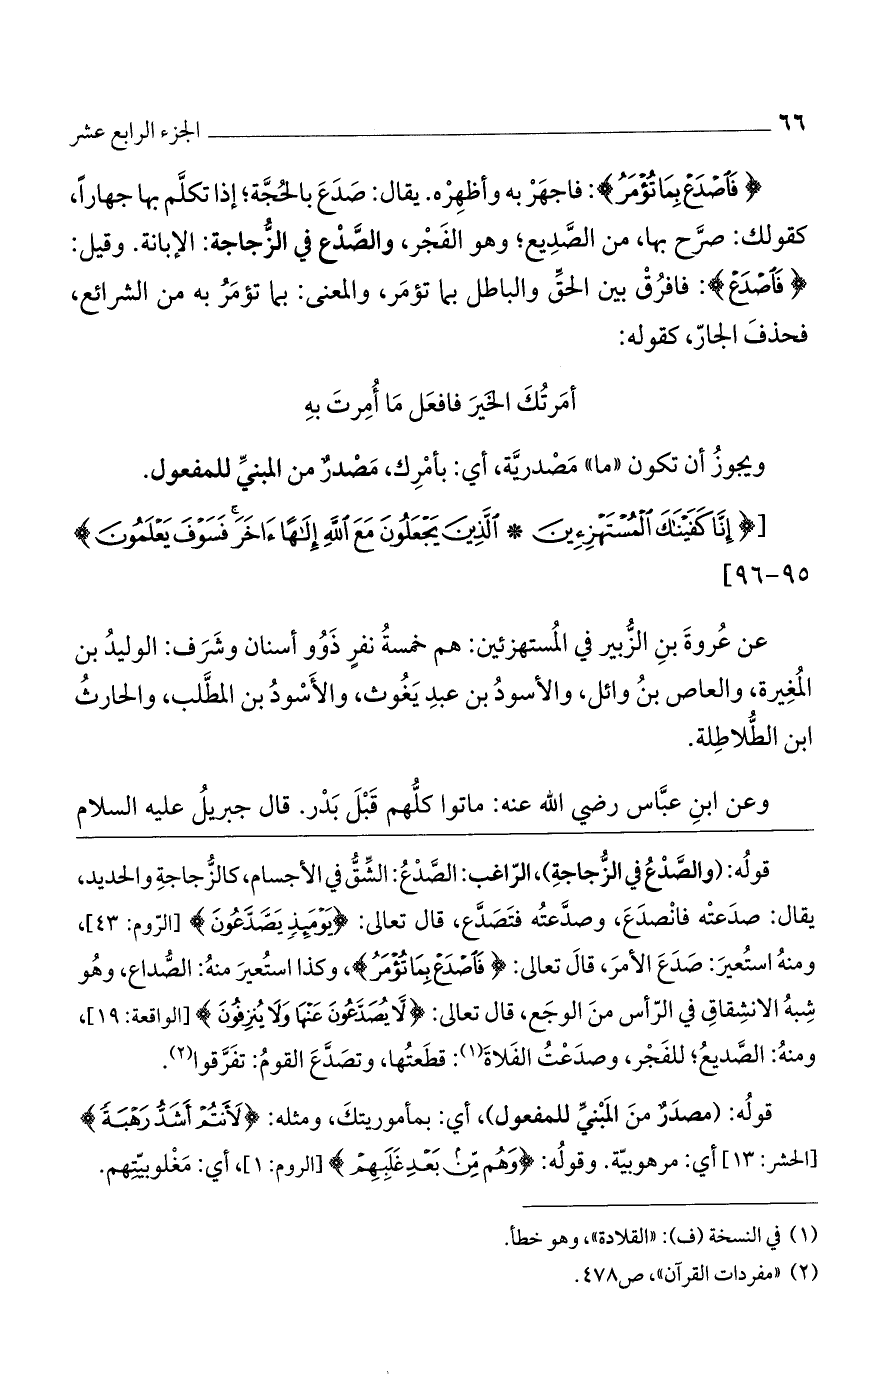 ٦٦ الجزء الرابع عشر
﴿ فَٱصۡدَعۡ بِمَا تُؤۡمَرُ ﴾: فاجهَرْ به وأظهِرْه. يقال: صَدَعَ بالحُجَّة؛ إذا تكلَّم بها جهاراً،
كقولك: صرَّح بها، من الصَّدِيع؛ وهو الفَجْر، والصَّدْع في الزُّجاجة: الإبانة. وقيل:
﴿ فَٱصۡدَعۡ ﴾: فافرُقْ بين الحقِّ والباطل بما تؤمَر، والمعنى: بما تؤمَرُ به من الشرائع،
فحذفَ الجارّ، كقوله:
أمَرتُكَ الخَيرَ فافعَل مَا أُمِرتَ بهِ
ويجوزُ أن تكون «ما» مَصْدريَّة، أي: بأمْرِك، مَصْدرٌ من المبنيِّ للمفعول.
[﴿ إِنَّا كَفَيۡنَٰكَ ٱلۡمُسۡتَهۡزِءِينَ * ٱلَّذِينَ يَجۡعَلُونَ مَعَ ٱللَّهِ إِلَٰهًا ءَاخَرَۚ فَسَوۡفَ يَعۡلَمُونَ ﴾
٩٥-٩٦]
عن عُروةَ بنِ الزُّبير في المُستهزئين: هم خمسةُ نفرٍ ذَوُو أسنان وشَرَف: الوليدُ بن
المُغِيرة، والعاص بنُ وائل، والأسودُ بن عبدِ يَغُوث، والأَسْودُ بن المطَّلب، والحارثُ
ابن الطُّلاطِلة.
وعن ابنِ عبَّاس رضي الله عنه: ماتوا كلُّهم قَبْلَ بَدْر. قال جبريلُ عليه السلام
قولُه: (والصَّدْعُ في الزُّجاجةِ)، الرّاغب: الصَّدْعُ: الشِّقُّ في الأجسام، كالزُّجاجةِ والحديد،
يقال: صدَعتْه فانْصدَعَ، وصدَّعتُه فتَصَدَّع، قال تعالى: ﴿يَوۡمَئِذٖ يَصَّدَّعُونَ ﴾ [الرّوم: ٤٣]،
ومنهُ استُعيرَ: صَدَعَ الأمرَ، قالَ تعالى: ﴿ فَٱصۡدَعۡ بِمَا تُؤۡمَرُ ﴾، وكذا استُعيرَ منهُ: الصُّداع، وهُو
شِبهُ الانشِقاقِ في الرّأس منَ الوجَع، قال تعالى: ﴿ لَّا يُصَدَّعُونَ عَنۡهَا وَلَا يُنزِفُونَ ﴾ [الواقعة: ١٩]،
ومنهُ: الصَّديعُ؛ للفَجْر، وصدَعْتُ الفَلاةَ(١): قطَعتُها، وتصَدَّعَ القومُ: تفَرَّقوا(٢).
قولُه: (مصدَرٌ منَ المَبْنيِّ للمفعول)، أي: بمأموريتكَ، ومثله: ﴿لَأَنتُمۡ أَشَدُّ رَهۡبَةٗ ﴾
[الحشر: ١٣] أي: مرهوبيّة. وقولُه: ﴿وَهُم مِّنۢ بَعۡدِ غَلَبِهِمۡ ﴾ [الروم: ١]، أي: مَغْلوبيّتِهم.
(١) في النسخة (ف): «القلادة»، وهو خطأ.
(٢) «مفردات القرآن»، ص٤٧٨.